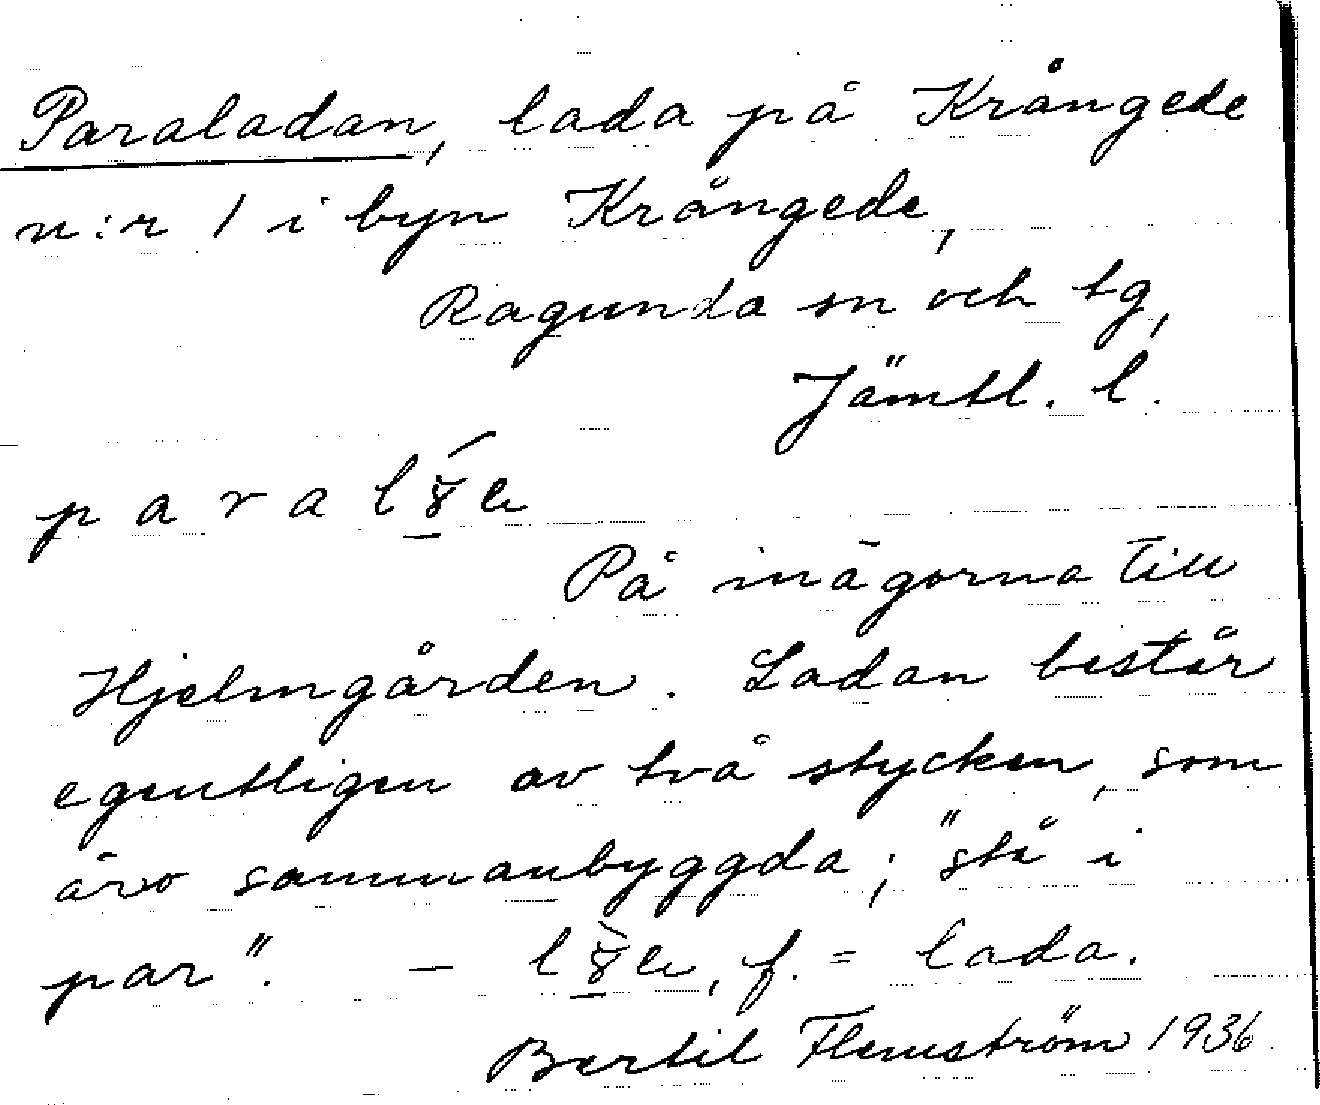 Paraladan, lada på Krångede
n:r 1 i byn Krångede,
Ragunda sn och tg,
Jämtl. l.
p a r a l
På inägorna till
Hjelmgården. Ladan består
egentligen av två stycken, som
äro sammanbyggda; "stå i
par". – f. = lada.
Bertil Flemström 1936